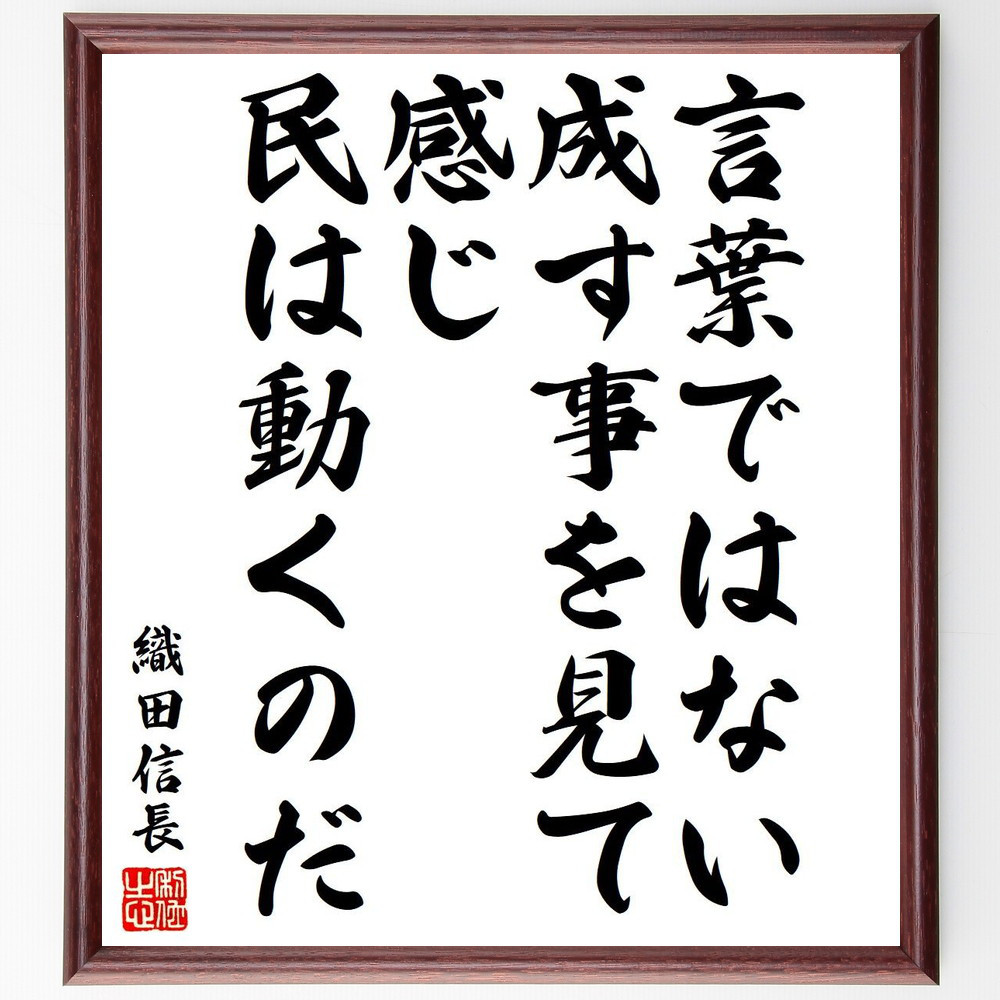 言葉ではない
成す事を見て
感じ
民は動くのだ
織田信長